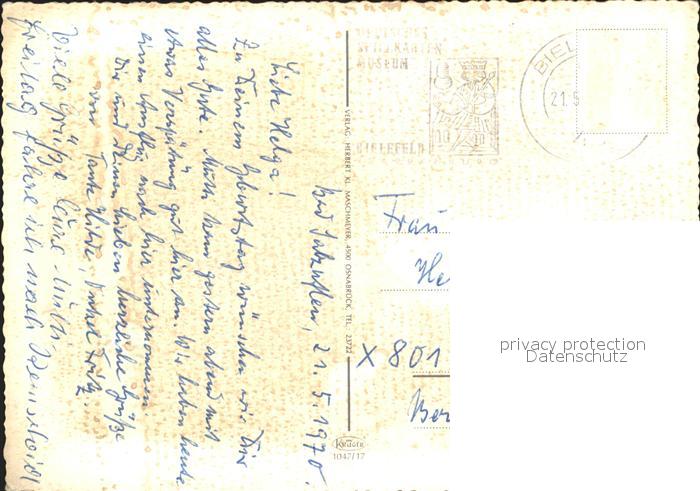 Bad Salzuflen, 21.5.1970.
Liebe Helga!
Zu Deinem Geburtstag wünschen wir Dir
alles Gute. Mutti kam gestern abend mit
etwas Verspätung gut hier an. Wir haben heute
einen Ausflug nach hier unternommen
Dir und Deinen Lieben herzliche Grüße
von Tante Hilde, Onkel Fritz.
Viele Grüße Eure Mutti
Freitag fahre ich nach
VERLAG HERBERT KL. MASCHMEYER, 4500 OSNABRÜCK, TEL. 23722
Krüger
1047/17
SPIELKARTEN
MUSEUM
BIELEFELD
BIEL
21.5
Frau
He
X 801
Ber
privacy protection
Datenschutz